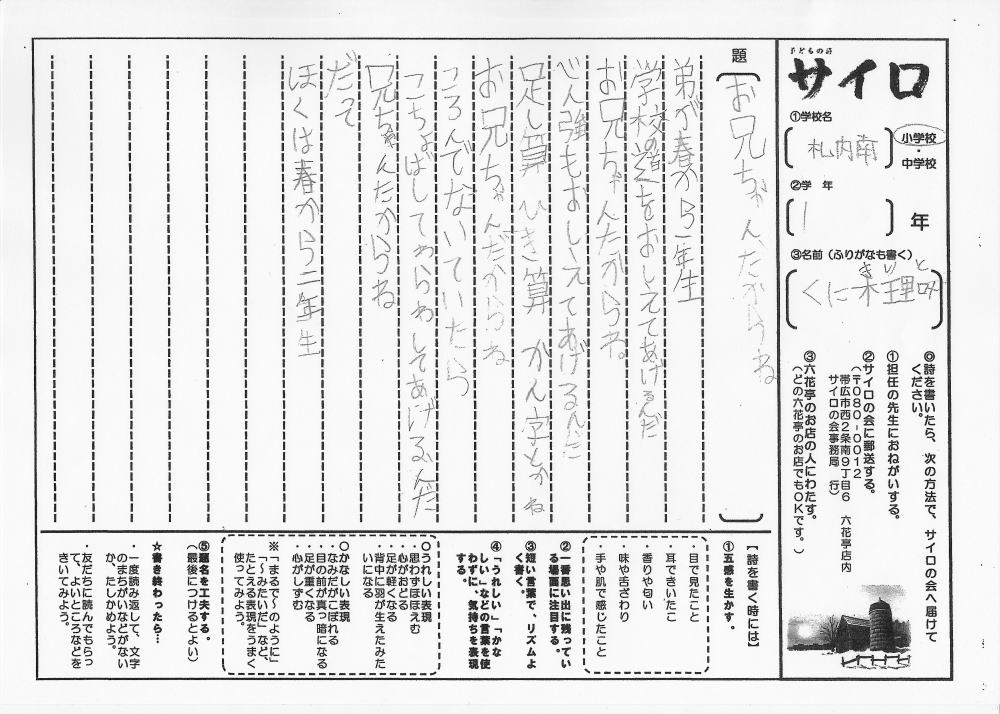 子どもの詩
サイロ
①学校名
札内南
小学校
・
中学校
②学 年
1
年
③名前（ふりがなも書く）
きりと
くに木理叶
◎詩を書いたら、次の方法で、サイロの会へ届けて
ください。
①担任の先生におねがいする。
②サイロの会に郵送する。
（〒080-0012
帯広市西2条南9丁目6 六花亭店内
サイロの会事務局 行）
③六花亭のお店の人にわたす。
（どの六花亭のお店でもOKです。）
題
お兄ちゃんだからね
弟が春から一年生
学校の道をおしえてあげるんだ
お兄ちゃんだからね
べん強もおしえてあげるんだ
足し算 ひき算 かん字とかね
お兄ちゃんだからね
ころんでないていたら
こちょばしてわらわしてあげるんだ
兄ちゃんだからね
だって
ぼくは春から二年生
【詩を書く時には】
①五感を生かす。
・目で見たこと
・耳できいたこと
・香りや匂い
・味や舌ざわり
・手や肌で感じたこと
②一番思い出に残ってい
る場面に注目する。
③短い言葉で、リズムよ
く書く。
④「うれしい」「かな
しい」などの言葉を使
わずに、気持ちを表現
する。
○うれしい表現
・思わずほほえむ
・心がおどる
・足が軽くなる
・背中に羽が生えたみた
いになる
○かなしい表現
・なみだがこぼれる
・目の前が真っ暗になる
・足が重くなる
・心がしずむ
※「まるで〜のように」
「〜みたいだ」など、
たとえる表現をうまく
使ってみよう。
⑤題名を工夫する。
（最後につけるとよい）
☆書き終わったら…
・一度読み返して、文字
のまちがいなどがない
か、たしかめよう。
・友だちに読んでもらっ
て、よいところなどを
きいてみよう。